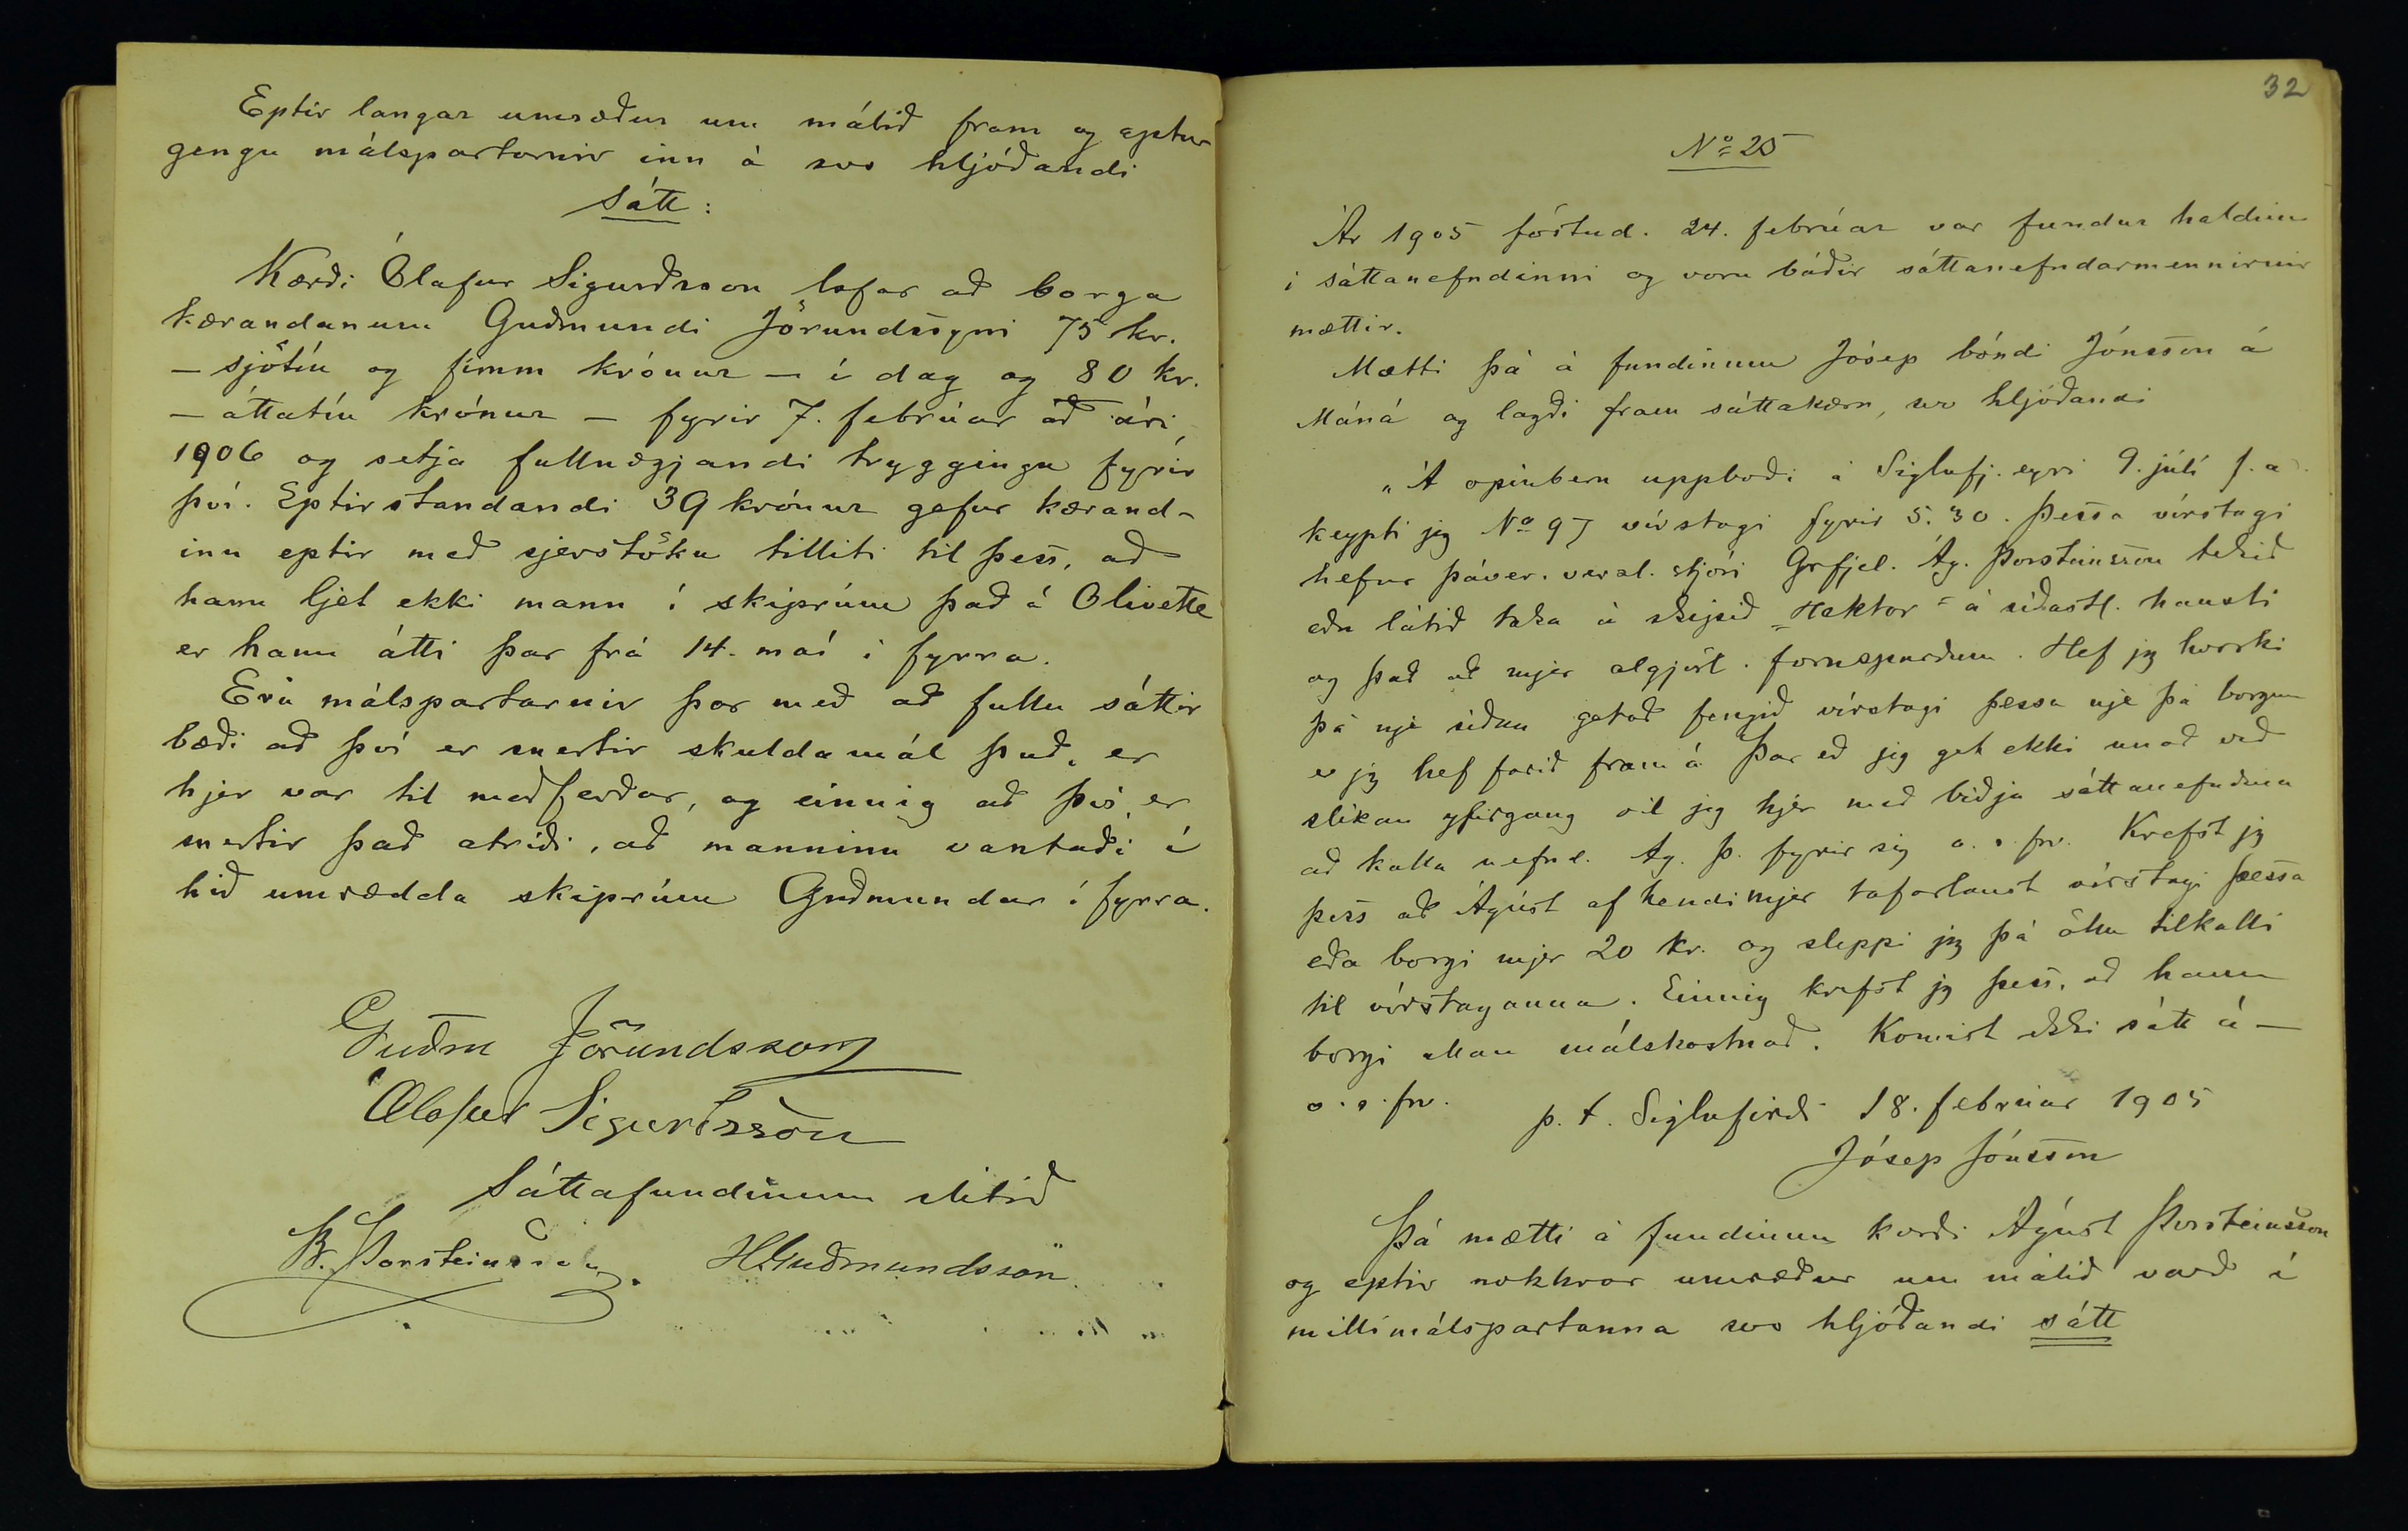 Eptir langar umræður um málið fram og aptur
gengu málspartarnir inn á svo hljóðandi
Sátt:
Kærði Ólafur Sigurðsson lofar að borga
kærandanum Guðmundi Jörundssyni 75 kr.
— sjötíu og fimm krónur — í dag og 80 kr.
— áttatíu krónur — fyrir 7. febrúar að ári,
1906 og setja fullnægjandi tryggingu fyrir
því. Eptirstandandi 39 krónur gefur kærand-
inn eptir með sjerstöku tilliti til þess, að
hann ljet ekki mann í skiprúm það á Olivette
er hann átti þar frá 14. maí í fyrra.
Eru málspartarnir þar með að fullu sáttir
bæði að því er snertir skuldamál það, er
hjer var til meðferðar, og einnig að því, er
snertir það atriði, að manninn vantaði í
hið umrædda skiprúm Guðmundar í fyrra.
Guðm Jörundsson
Ólafur Sigurðsson
Sáttafundinum slitið
B. Þorsteinsson. HGuðmundsson.
32
No 25
Ár 1905 föstud. 24. febrúar var fundur haldinn
í sáttanefndinni og voru báðir sáttanefndarmennirnir
mættir.
Mætti þá á fundinum Jósep bóndi Jónsson á
Máná og lagði fram sáttakæru, svo hljóðandi
„Á opinberu uppboði á Siglufj. eyri 9. júlí f. a.
keypti jeg No 97 vírstagi fyrir 5.30. Þessa vírstagi
hefur þáver. verzl. stjóri Grfjel. Ág. Þorsteinsson tekið
eða látið taka á skipið „Hektor" á síðastl. hausti
og það að mjer algjörl. fornspurðum. Hef jeg hvorki
þá nje síðan getað fengið vírstagi þessa nje þá borgun
er jeg hef farið fram á. Þar eð jeg get ekki unað við
slíkan yfirgang vil jeg hjer með biðja sáttanefndina
að kalla nefnd. Ág. Þ. fyrir sig o. s. frv. Krefst jeg
þess að Ágúst afhendi mjer tafarlaust vírstagi þessa
eða borgi mjer 20 kr. og sleppi jeg þá öllu tilkalli
til vírstaganna. Einnig krefst jeg þess, að hann
borgi allan málskostnað. Komist ekki sátt á —
o. s. frv.
p. t. Siglufirði 18. febrúar 1905
Jósep Jónsson
Þá mætti á fundinum kærði Ágúst Þorsteinsson
og eptir nokkrar umræður um málið varð í
milli málspartanna svo hljóðandi sátt